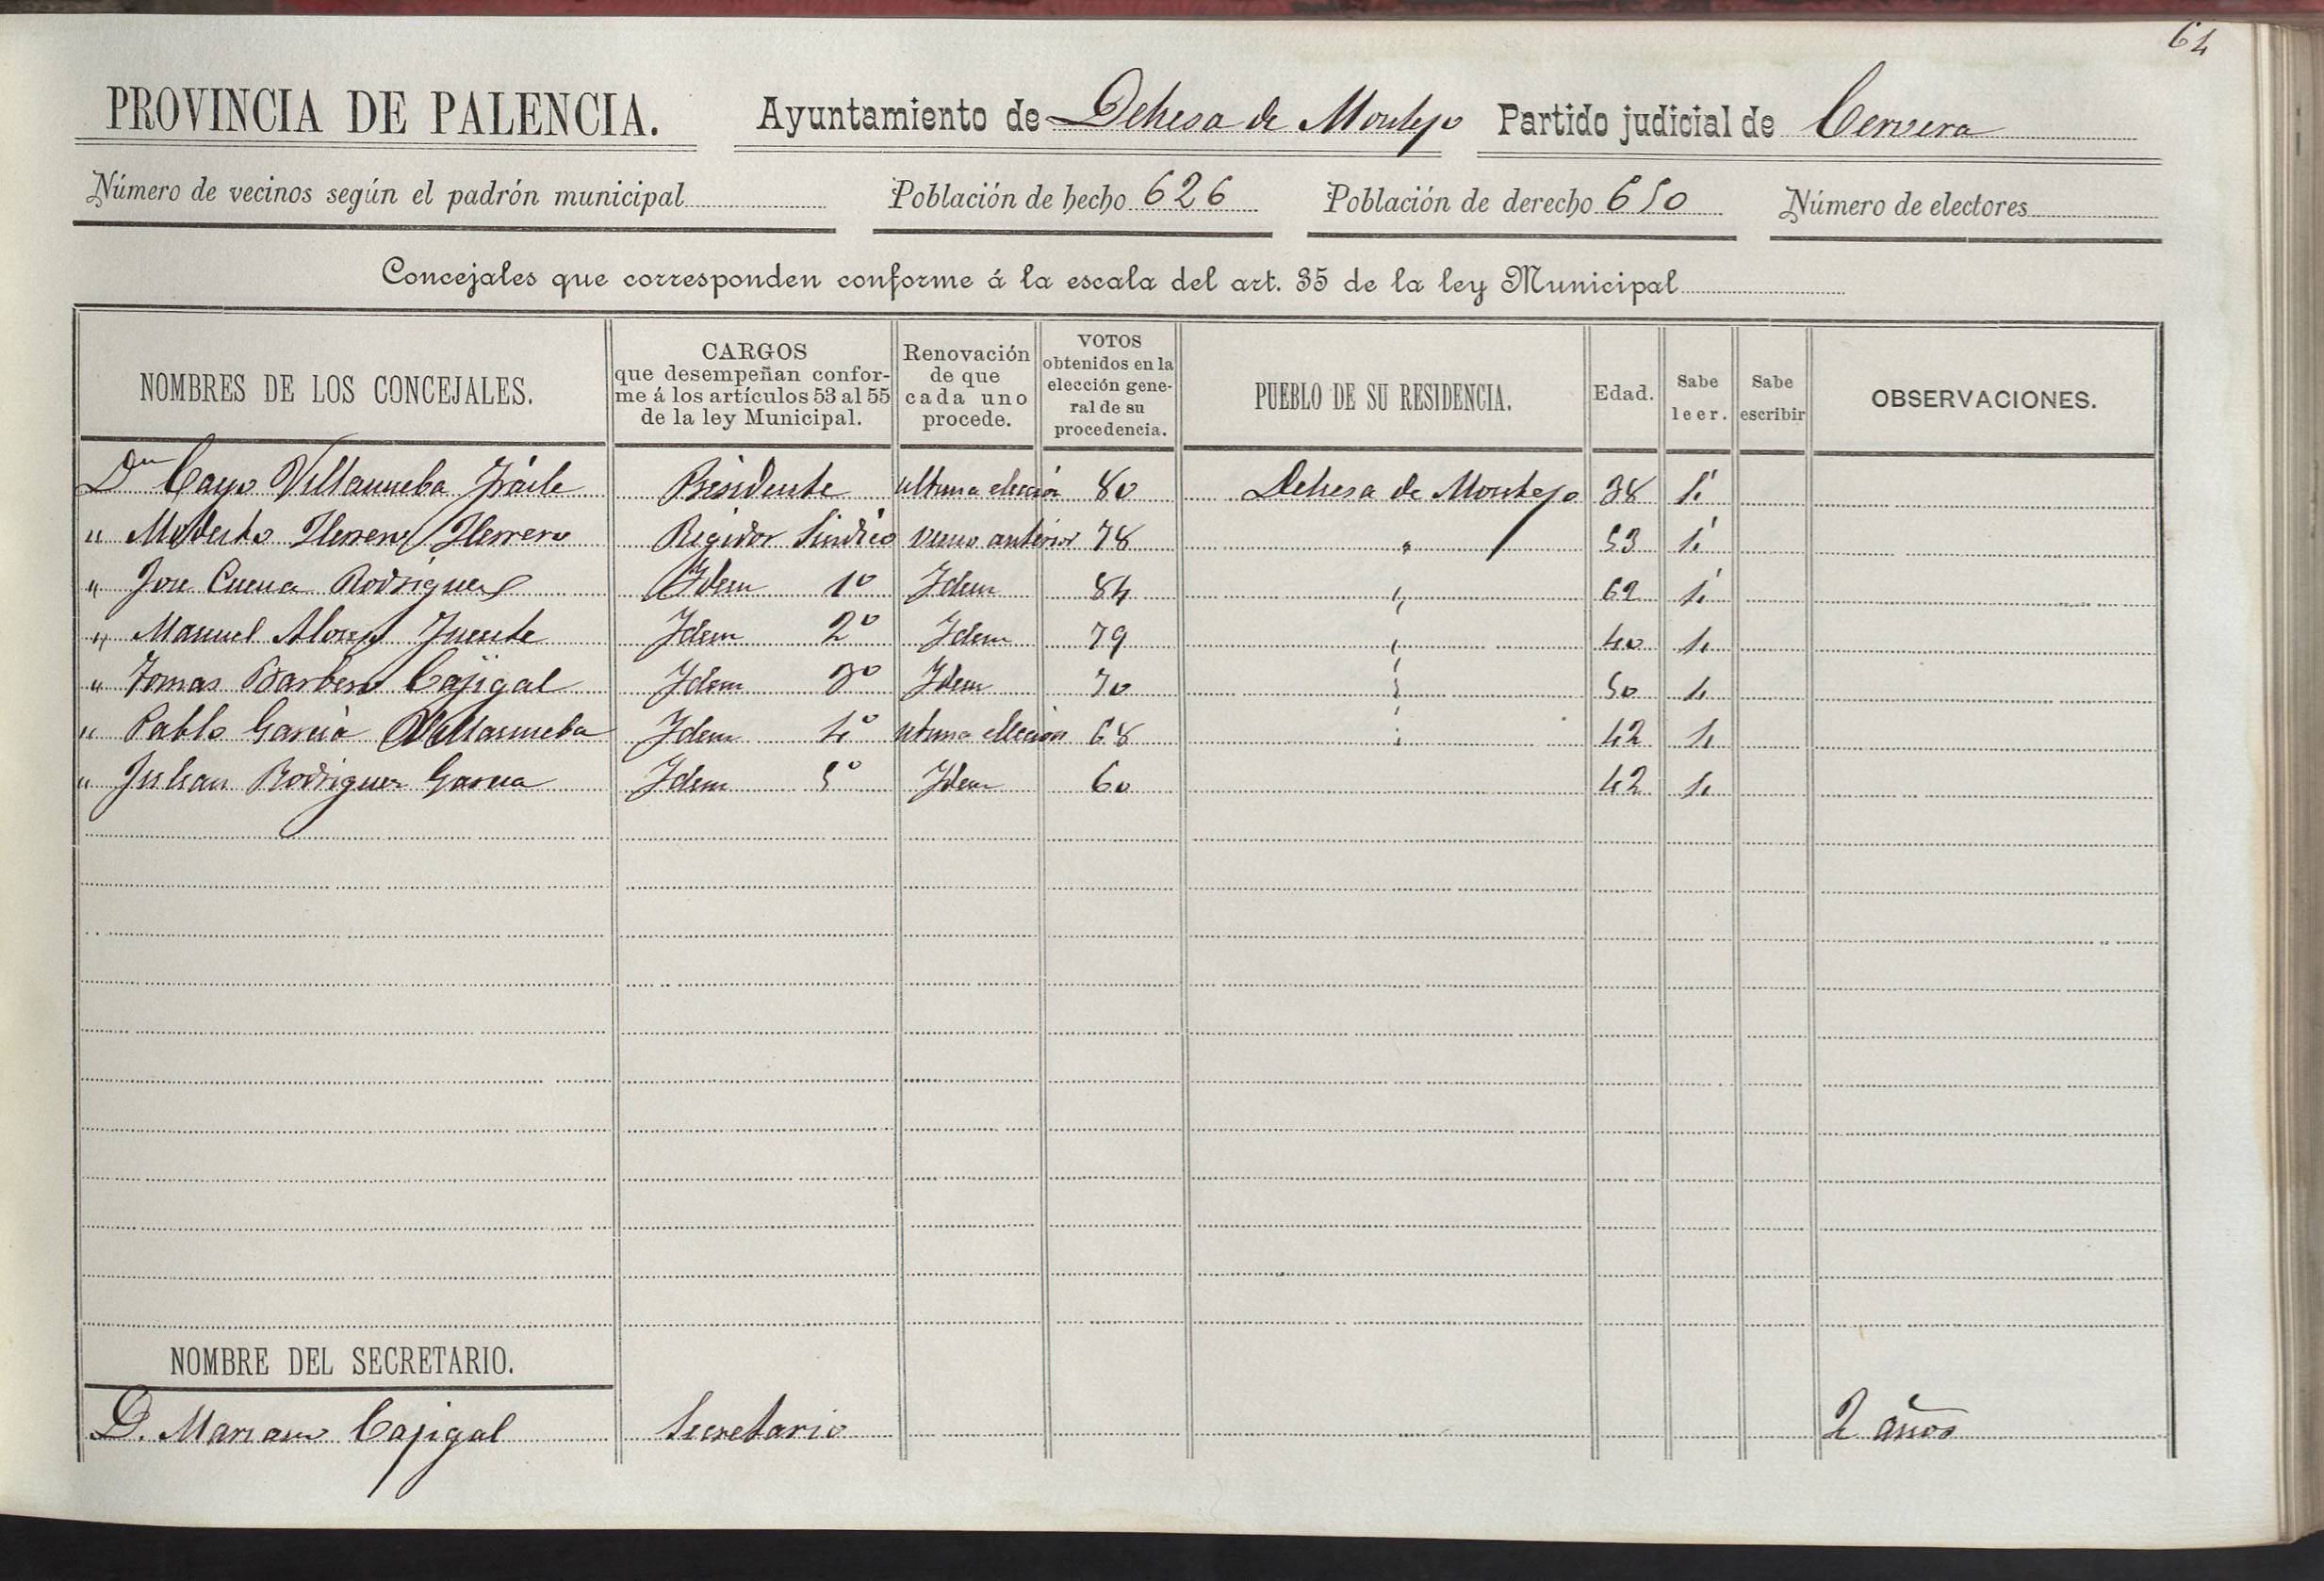 64
PROVINCIA DE PALENCIA. Ayuntamiento de Dehesa de Montejo Partido judicial de Cervera
Número de vecinos según el padrón municipal Población de hecho 626 Población de derecho 650 Número de electores
Concejales que corresponden conforme á la escala del art. 35 de la ley Municipal
NOMBRES DE LOS CONCEJALES. CARGOS que desempeñan confor-me á los artículos 53 al 55 de la ley Municipal. Renovación de que cada uno procede. VOTOS obtenidos en la elección gene-ral de su procedencia. PUEBLO DE SU RESIDENCIA. Edad. Sabe leer. Sabe escribir OBSERVACIONES.
Dn Cayo Villanueba Fraile Presidente ultima elección 80 Dehesa de Montejo 38 si
" Modesto Herrero Herrero Regidor Sindico anterior 78 " 53 si
" Jose Cuena Rodriguez Idem 1º Idem 84 " 62 si
" Manuel Alonso Fuente Idem 2º Idem 79 " 40 si
" Tomas Barbero Cajigal Idem 3º Idem 70 " 50 si
" Pablo Garcia Villanueba Idem 4º ultima elección 68 " 42 si
" Julian Rodriguez Garcia Idem 5º Idem 60 42 si
NOMBRE DEL SECRETARIO.
D. Mariano Cajigal Secretario 2 años